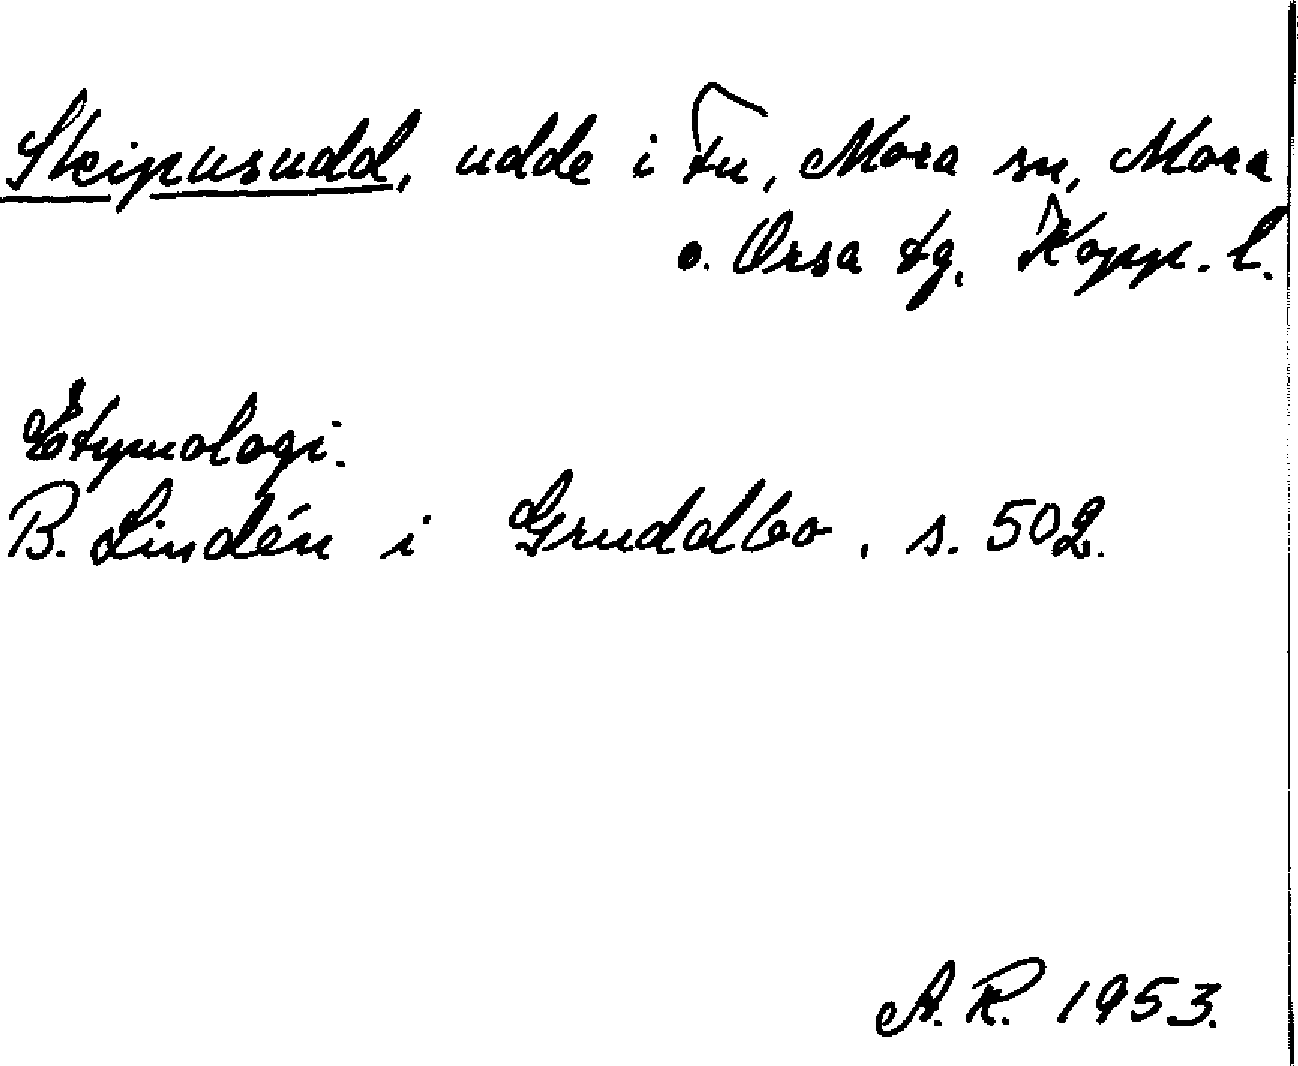 Skeipusudd, udde i Fu, Mora sn, Mora
o. Orsa tg, Kopp. l.
Etymologi.
B. Lindén i Gruddbo, s. 502.
A. R. 1953.